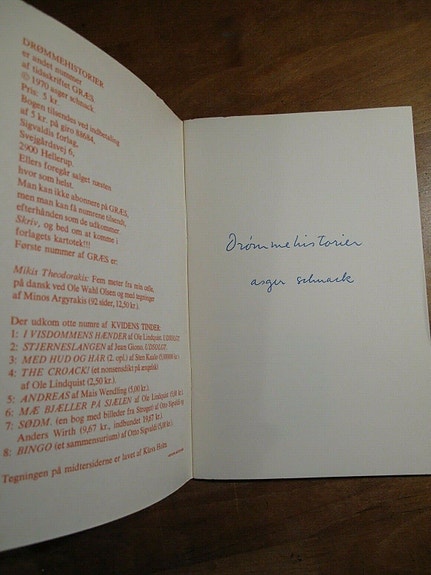 DRØMMEHISTORIER
er andet nummer
af tidsskriftet GRÆS.
© 1970 asger schnack.
Pris: 5 kr.
Bogen tilsendes ved indbetaling
af 5 kr. på giro 88684,
Sigvaldis forlag,
Svejgårdsvej 6,
2900 Hellerup.
Ellers foregår salget næsten
hvor som helst.
Man kan ikke abonnere på GRÆS,
men man kan få numrene tilsendt,
efterhånden som de udkommer
Skriv, og bed om at komme i
forlagets kartotek!!!
Første nummer af GRÆS er:
Mikis Theodorakis: Fem meter fra min celle,
på dansk ved Ole Wahl Olsen og med tegninger
af Minos Argyrakis (92 sider, 12,50 kr.).
Der udkom otte numre af KVIDENS TINDER:
1: I VISDOMMENS HÆNDER af Ole Lindquist. UDSOLGT.
2: STJERNESLANGEN af Jean Gione. UDSOLGT.
3: MED HUD OG HÅR (2. opl.) af Sten Kaalø
4: THE CROACK! (et nonsensdikt på
af Ole Lindquist (2,50 kr.).
5: ANDREAS af Mais Wendling (5,00 kr.).
6: MÆ BJÆLLER PÅ SJÆLEN af Ole Lindquist
7: SØDM. (en bog med billeder fra Strøget) af Otto Sigvaldi og
Anders Wirth (9,67 kr., indbundet 19,67 kr.).
8: BINGO (et sammensurium) af Otto Sigvaldi
Tegningen på midtersiderne er lavet af Klavs Holm.
Drømmehistorier
asger schnack